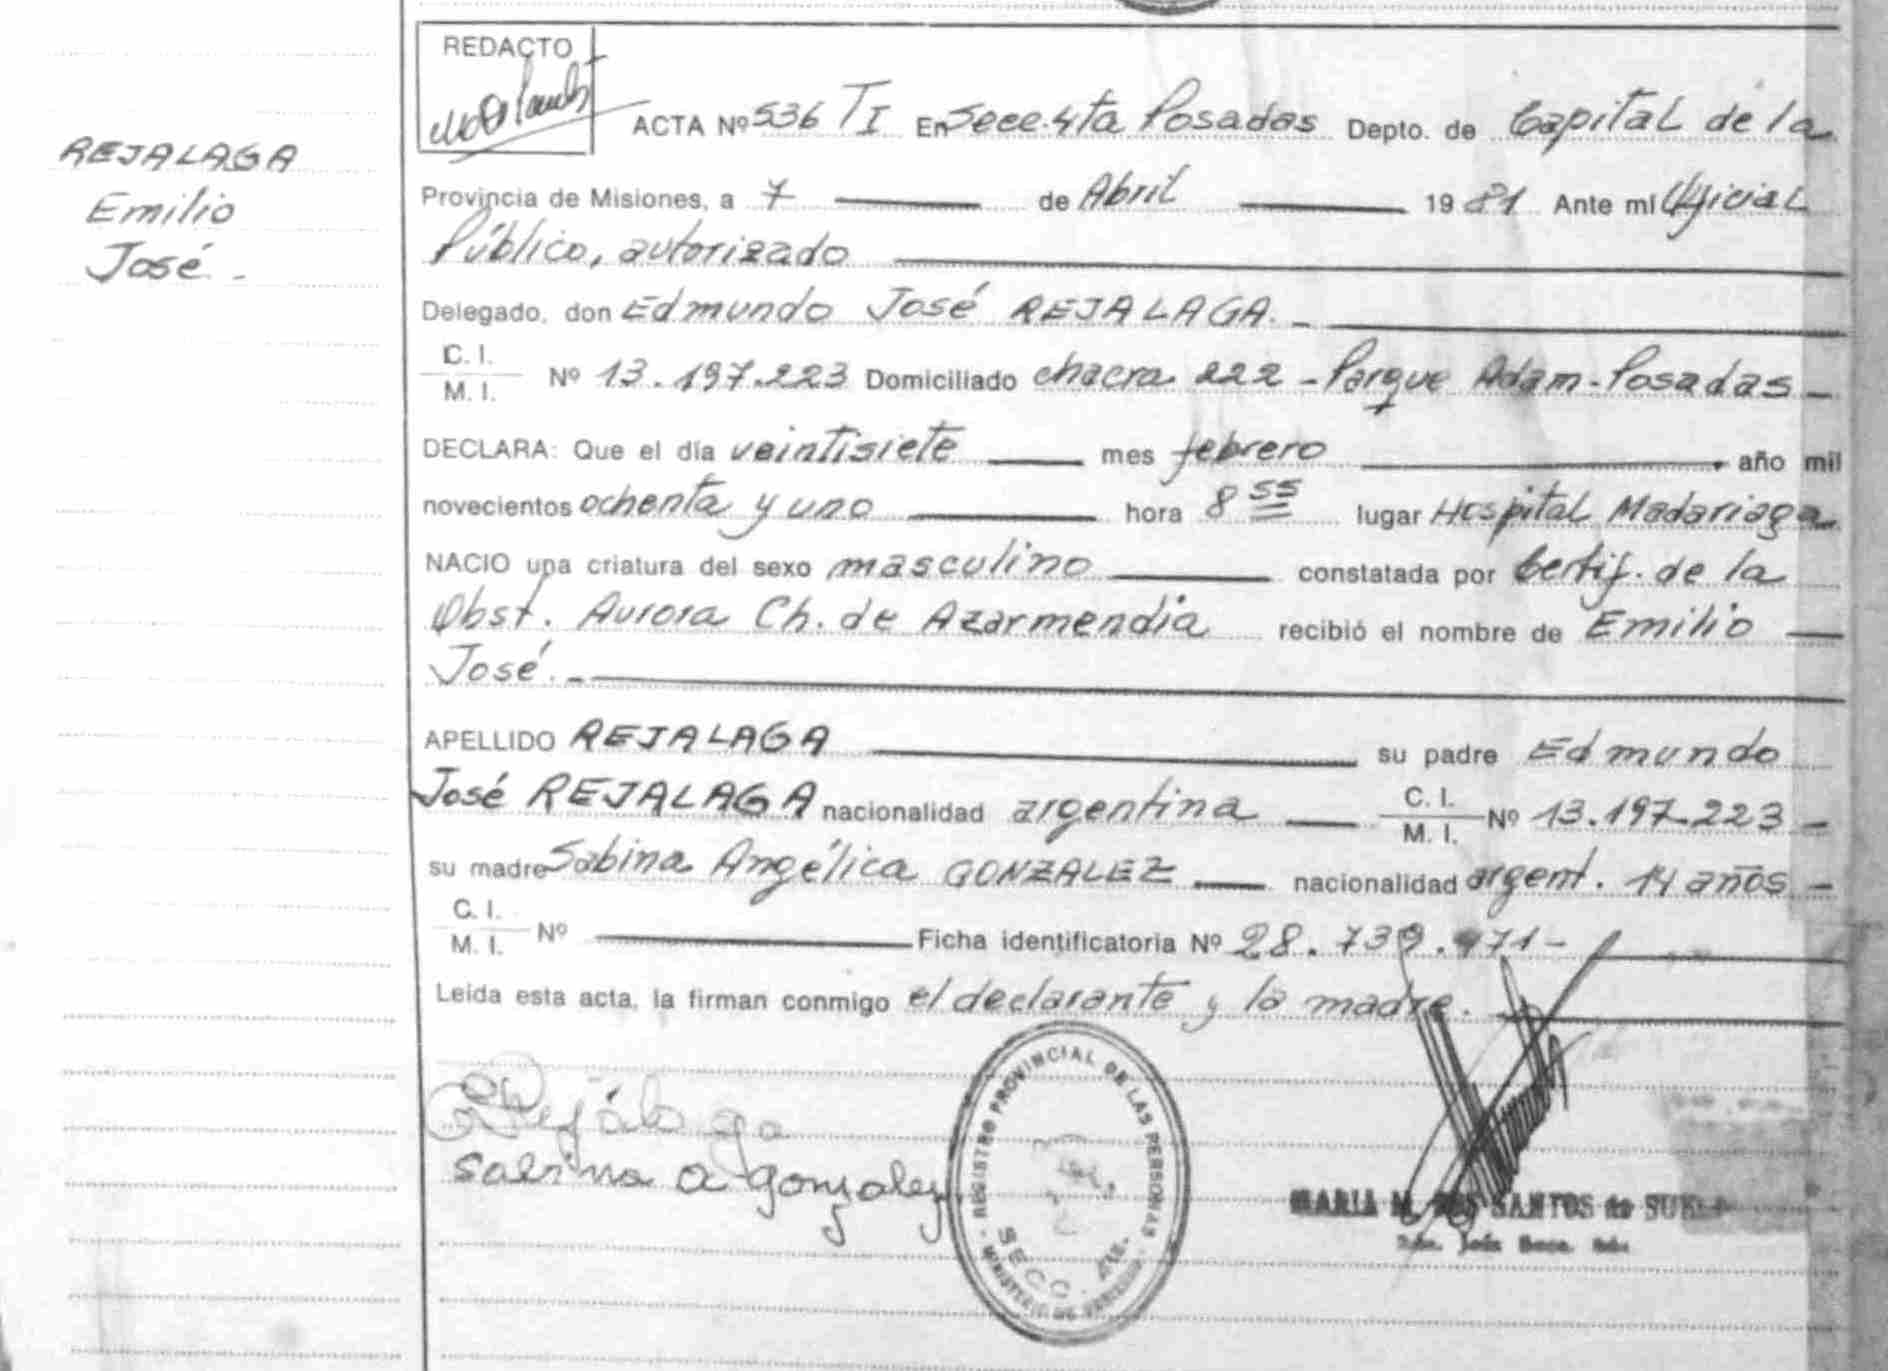 REJALAGA
Emilio
José -
REDACTO
ACTA Nº 536 TI En Secc. 4ta Posadas Depto. de Capital de la
Provincia de Misiones, a 7 de Abril 1981 Ante mi Oficial
Público, autorizado
Delegado, don Edmundo José REJALAGA. -
C. I.
M. I. Nº 13.197.223 Domiciliado chacra 222 - Parque Adam - Posadas -
DECLARA: Que el día veintisiete mes febrero año mil
novecientos ochenta y uno hora 8 55 lugar Hospital Madariaga
NACIO una criatura del sexo masculino constatada por Certif. de la
Obst. Aurora Ch. de Azarmendia recibió el nombre de Emilio
José. -
APELLIDO REJALAGA su padre Edmundo
José REJALAGA nacionalidad argentina C. I.
M. I. Nº 13.197.223 -
su madre Sabina Angélica GONZALEZ nacionalidad argent. 14 años -
C. I.
M. I. Nº Ficha identificatoria Nº 28.739.971 -
Leída esta acta, la firman conmigo el declarante y la madre.
Rejálaga
Sabina a gonzalez
REGISTRO PROVINCIAL DE LAS PERSONAS
SECC. 4TA.
MINISTERIO DE
MARIA M. DOS SANTOS de